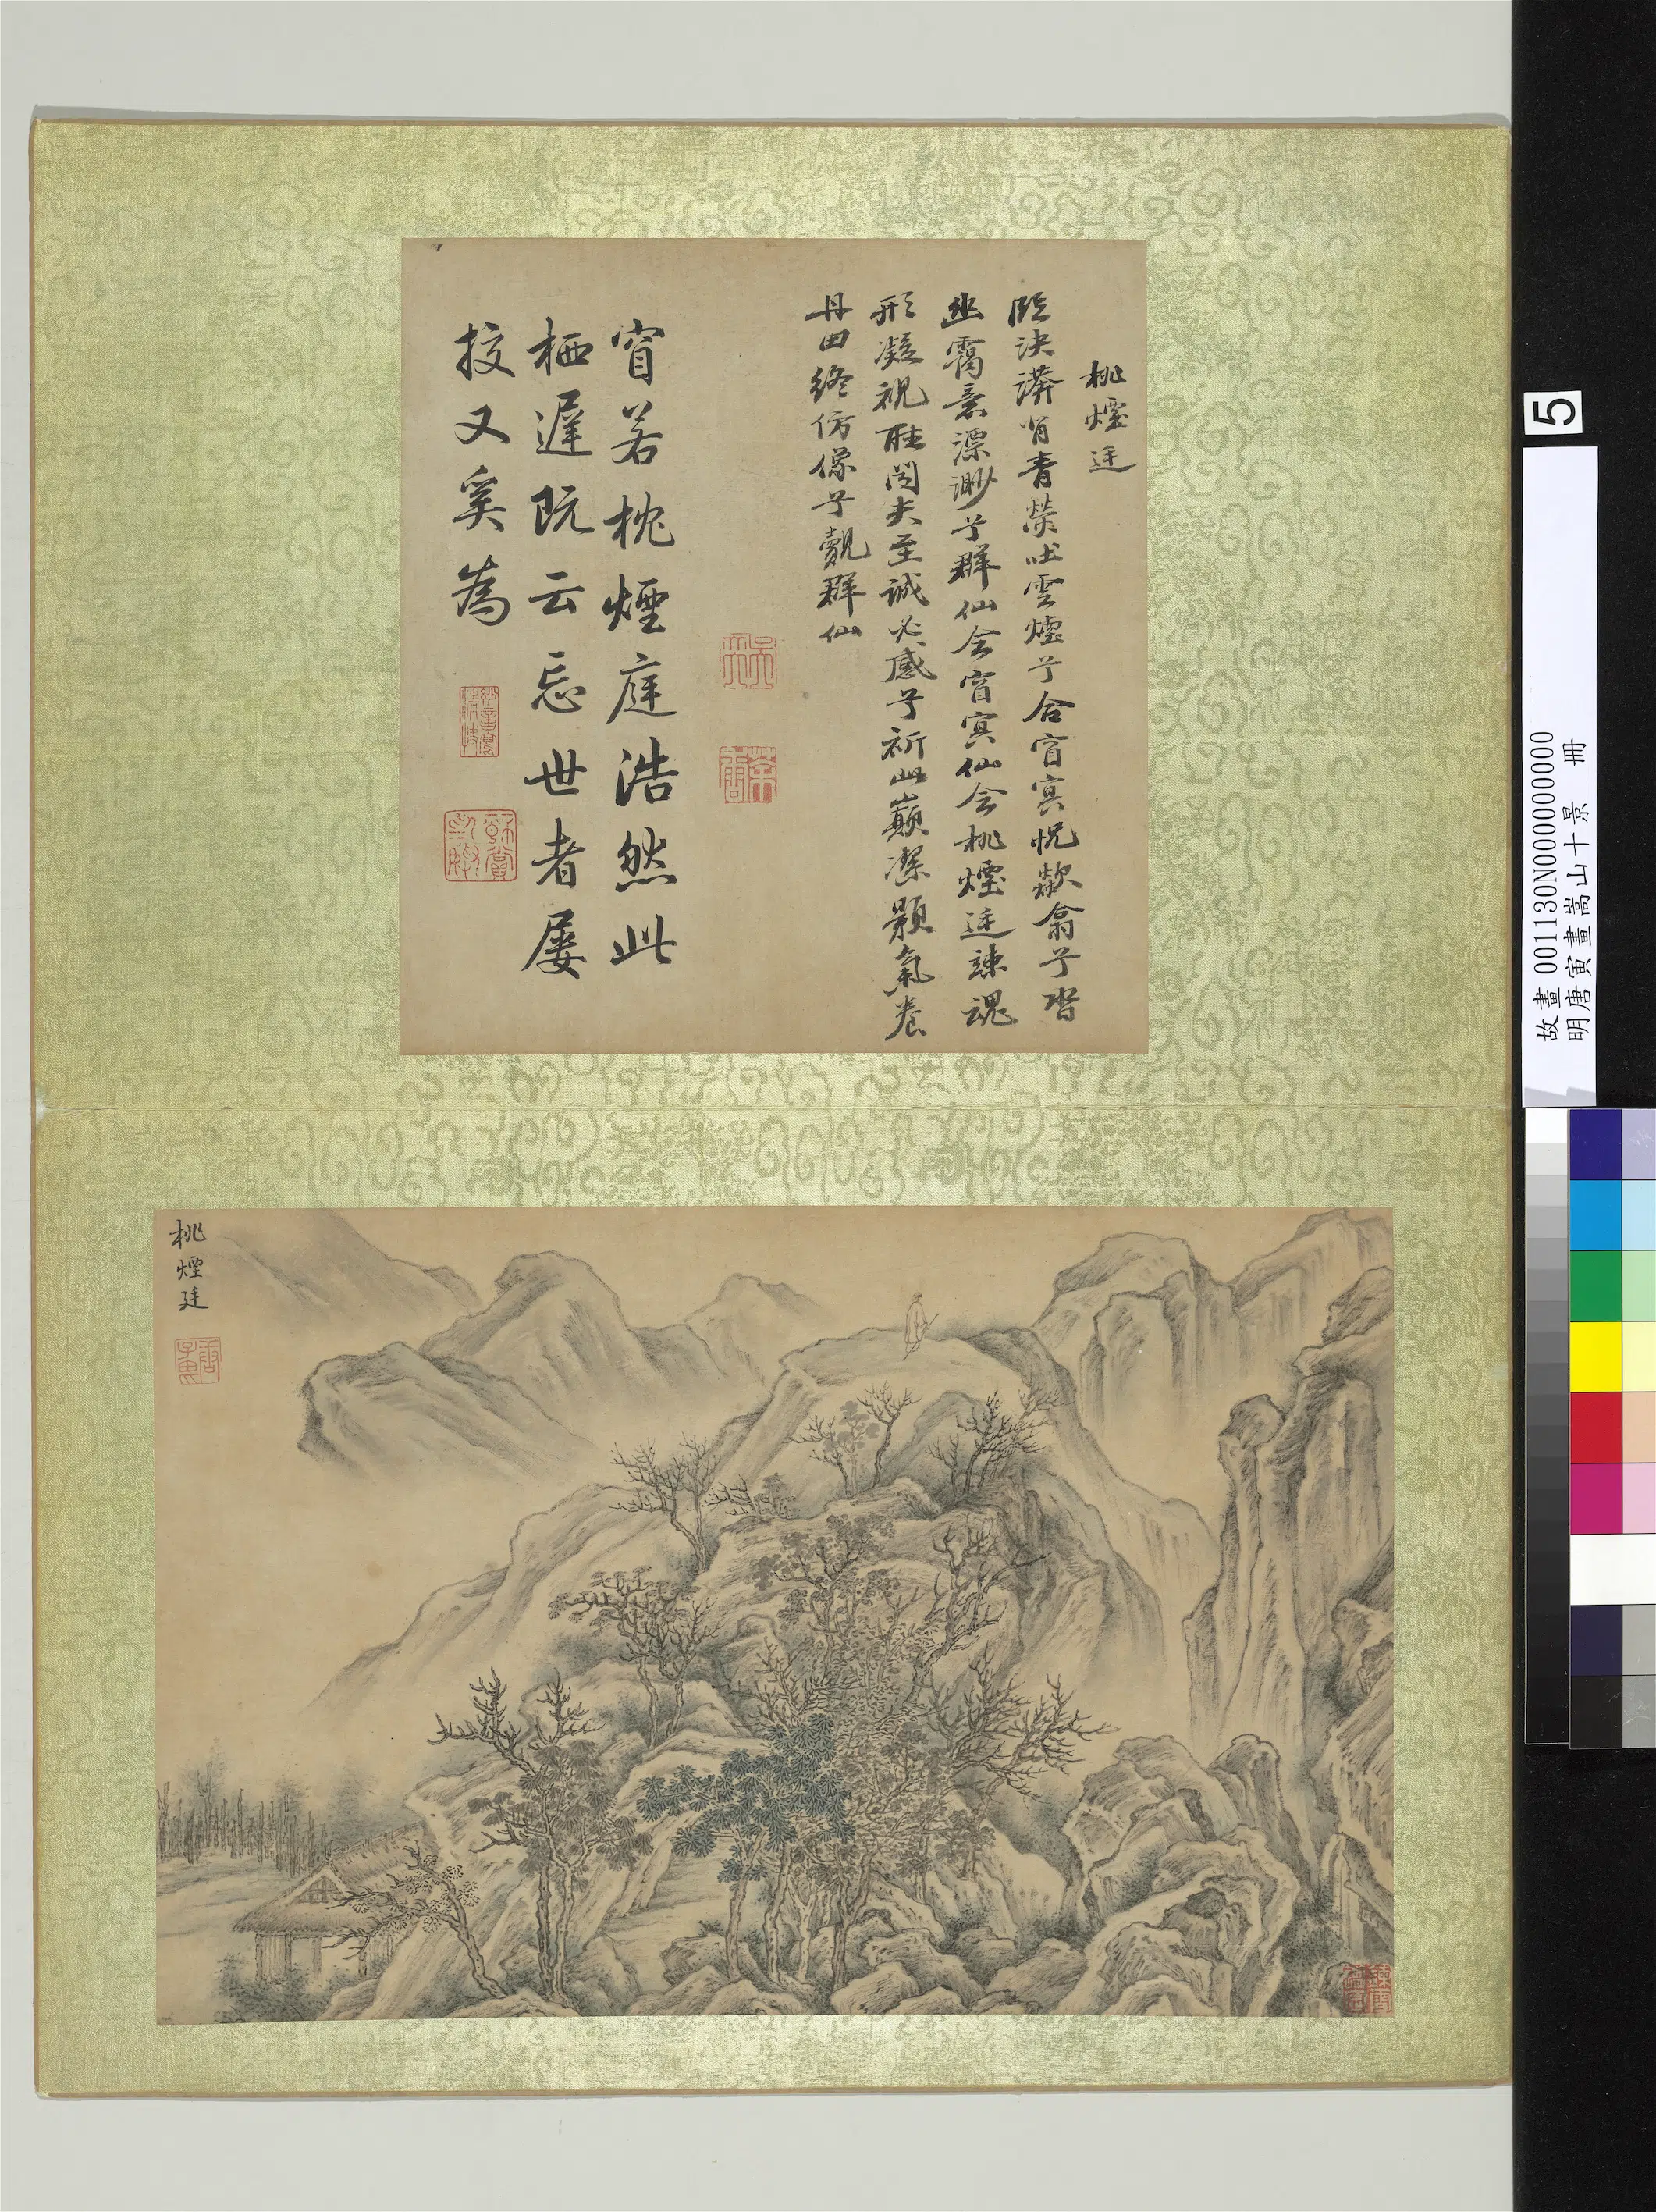 桃煙廷
臨泱漭背青熒吐雲煙兮合窅冥怳欻翕兮沓
幽靄意漂渺兮群仙会窅冥仙会桃煙廷竦魂
形凝視聽闻夫至誠必感兮祈此巔潔顥氣養
丹田終仿像兮覯群仙
窅若枕煙庭浩然此
栖遲既云忘世者屡
投又奚為
桃煙廷
5
故畫 001130N000000000
明唐寅畫嵩山十景 冊